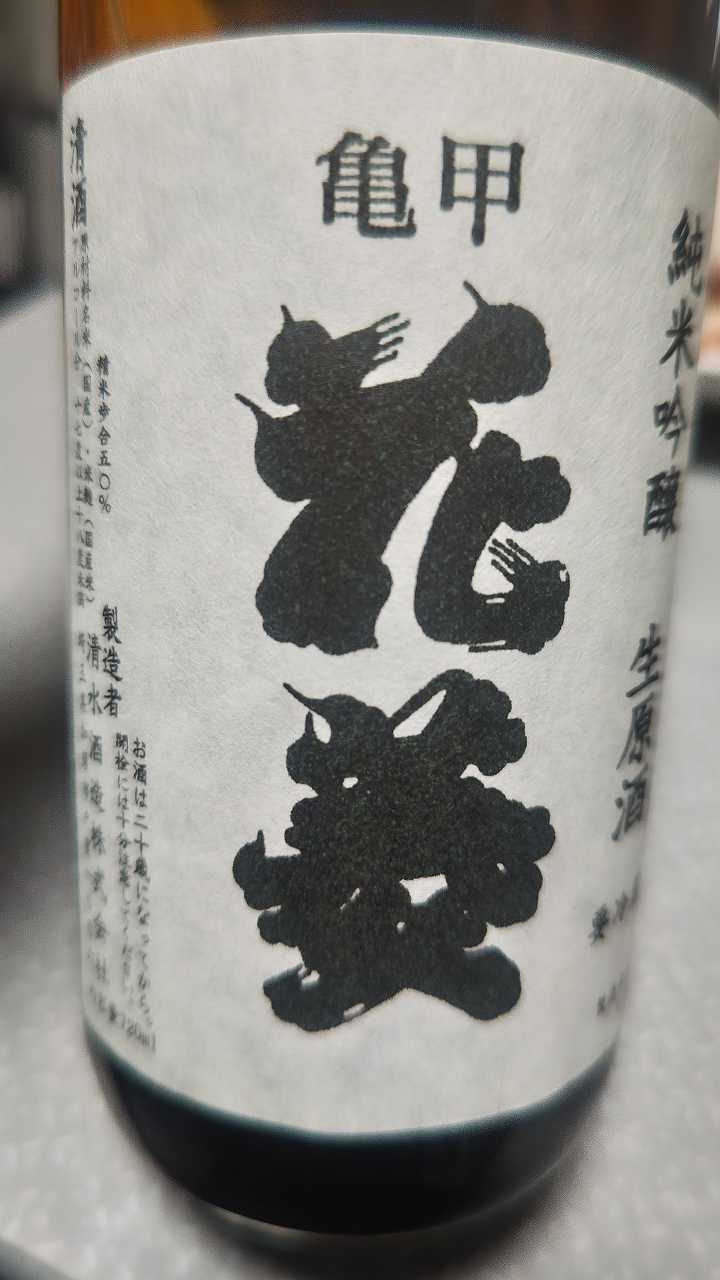 亀甲
花菱
純米吟醸 生原酒
要冷
清酒
原材料名 米(国産)・米麹(国産米)
精米歩合五〇%
アルコール分 十七度以上十八度未満
製造者
清水酒造株式会社
お酒は二十歳になってから。
開栓には十分注意してください。
内容量720ml